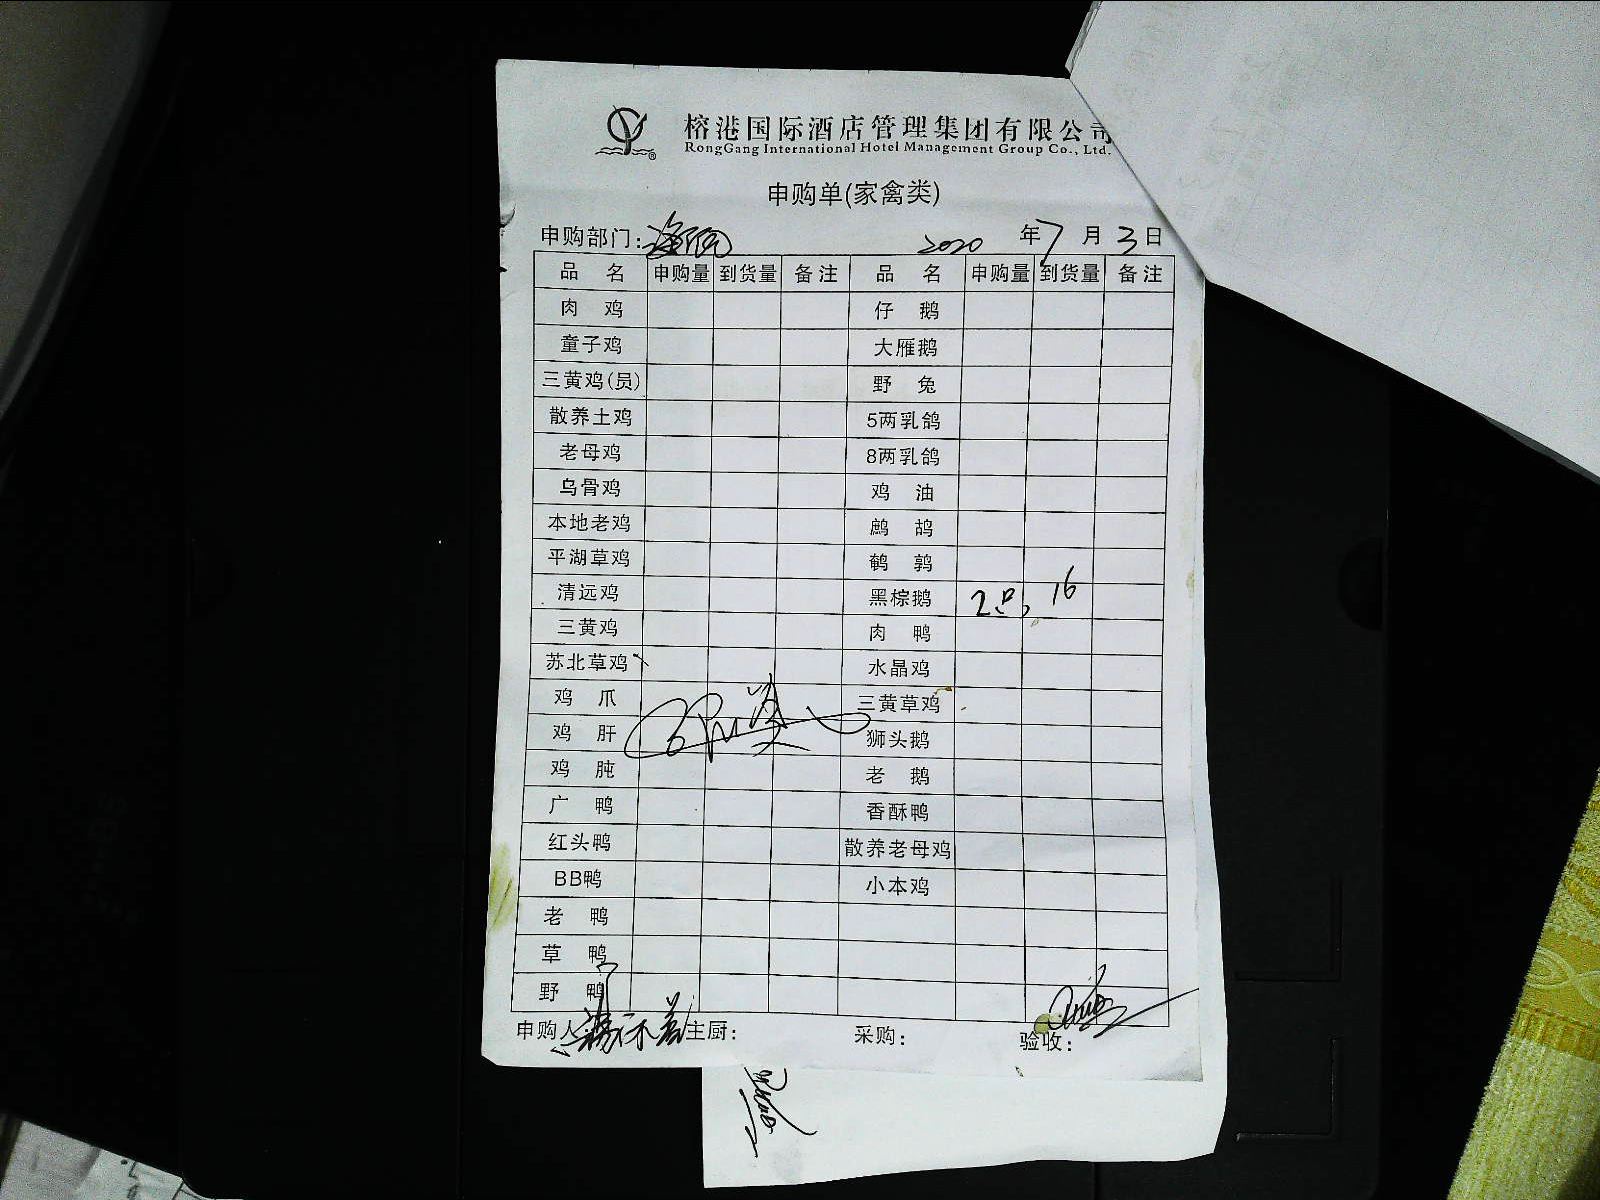 榕港国际酒店管理集团有限公司
RongGang International Hotel Management Group Co., Ltd.
申购单(家禽类)
申购部门: 2020 年 7 月 3 日
品 名 申购量 到货量 备注 品 名 申购量 到货量 备注
肉 鸡 仔 鹅
童子鸡 大雁鹅
三黄鸡(员) 野 兔
散养土鸡 5两乳鸽
老母鸡 8两乳鸽
乌骨鸡 鸡 油
本地老鸡 鹧 鸪
平湖草鸡 鹌 鹑
清远鸡 黑棕鹅 2只 16
三黄鸡 肉 鸭
苏北草鸡 水晶鸡
鸡 爪 三黄草鸡
鸡 肝 狮头鹅
鸡 肫 老 鹅
广 鸭 香酥鸭
红头鸭 散养老母鸡
BB鸭 小本鸡
老 鸭
草 鸭
野 鸭
申购人 主厨: 采购: 验收: